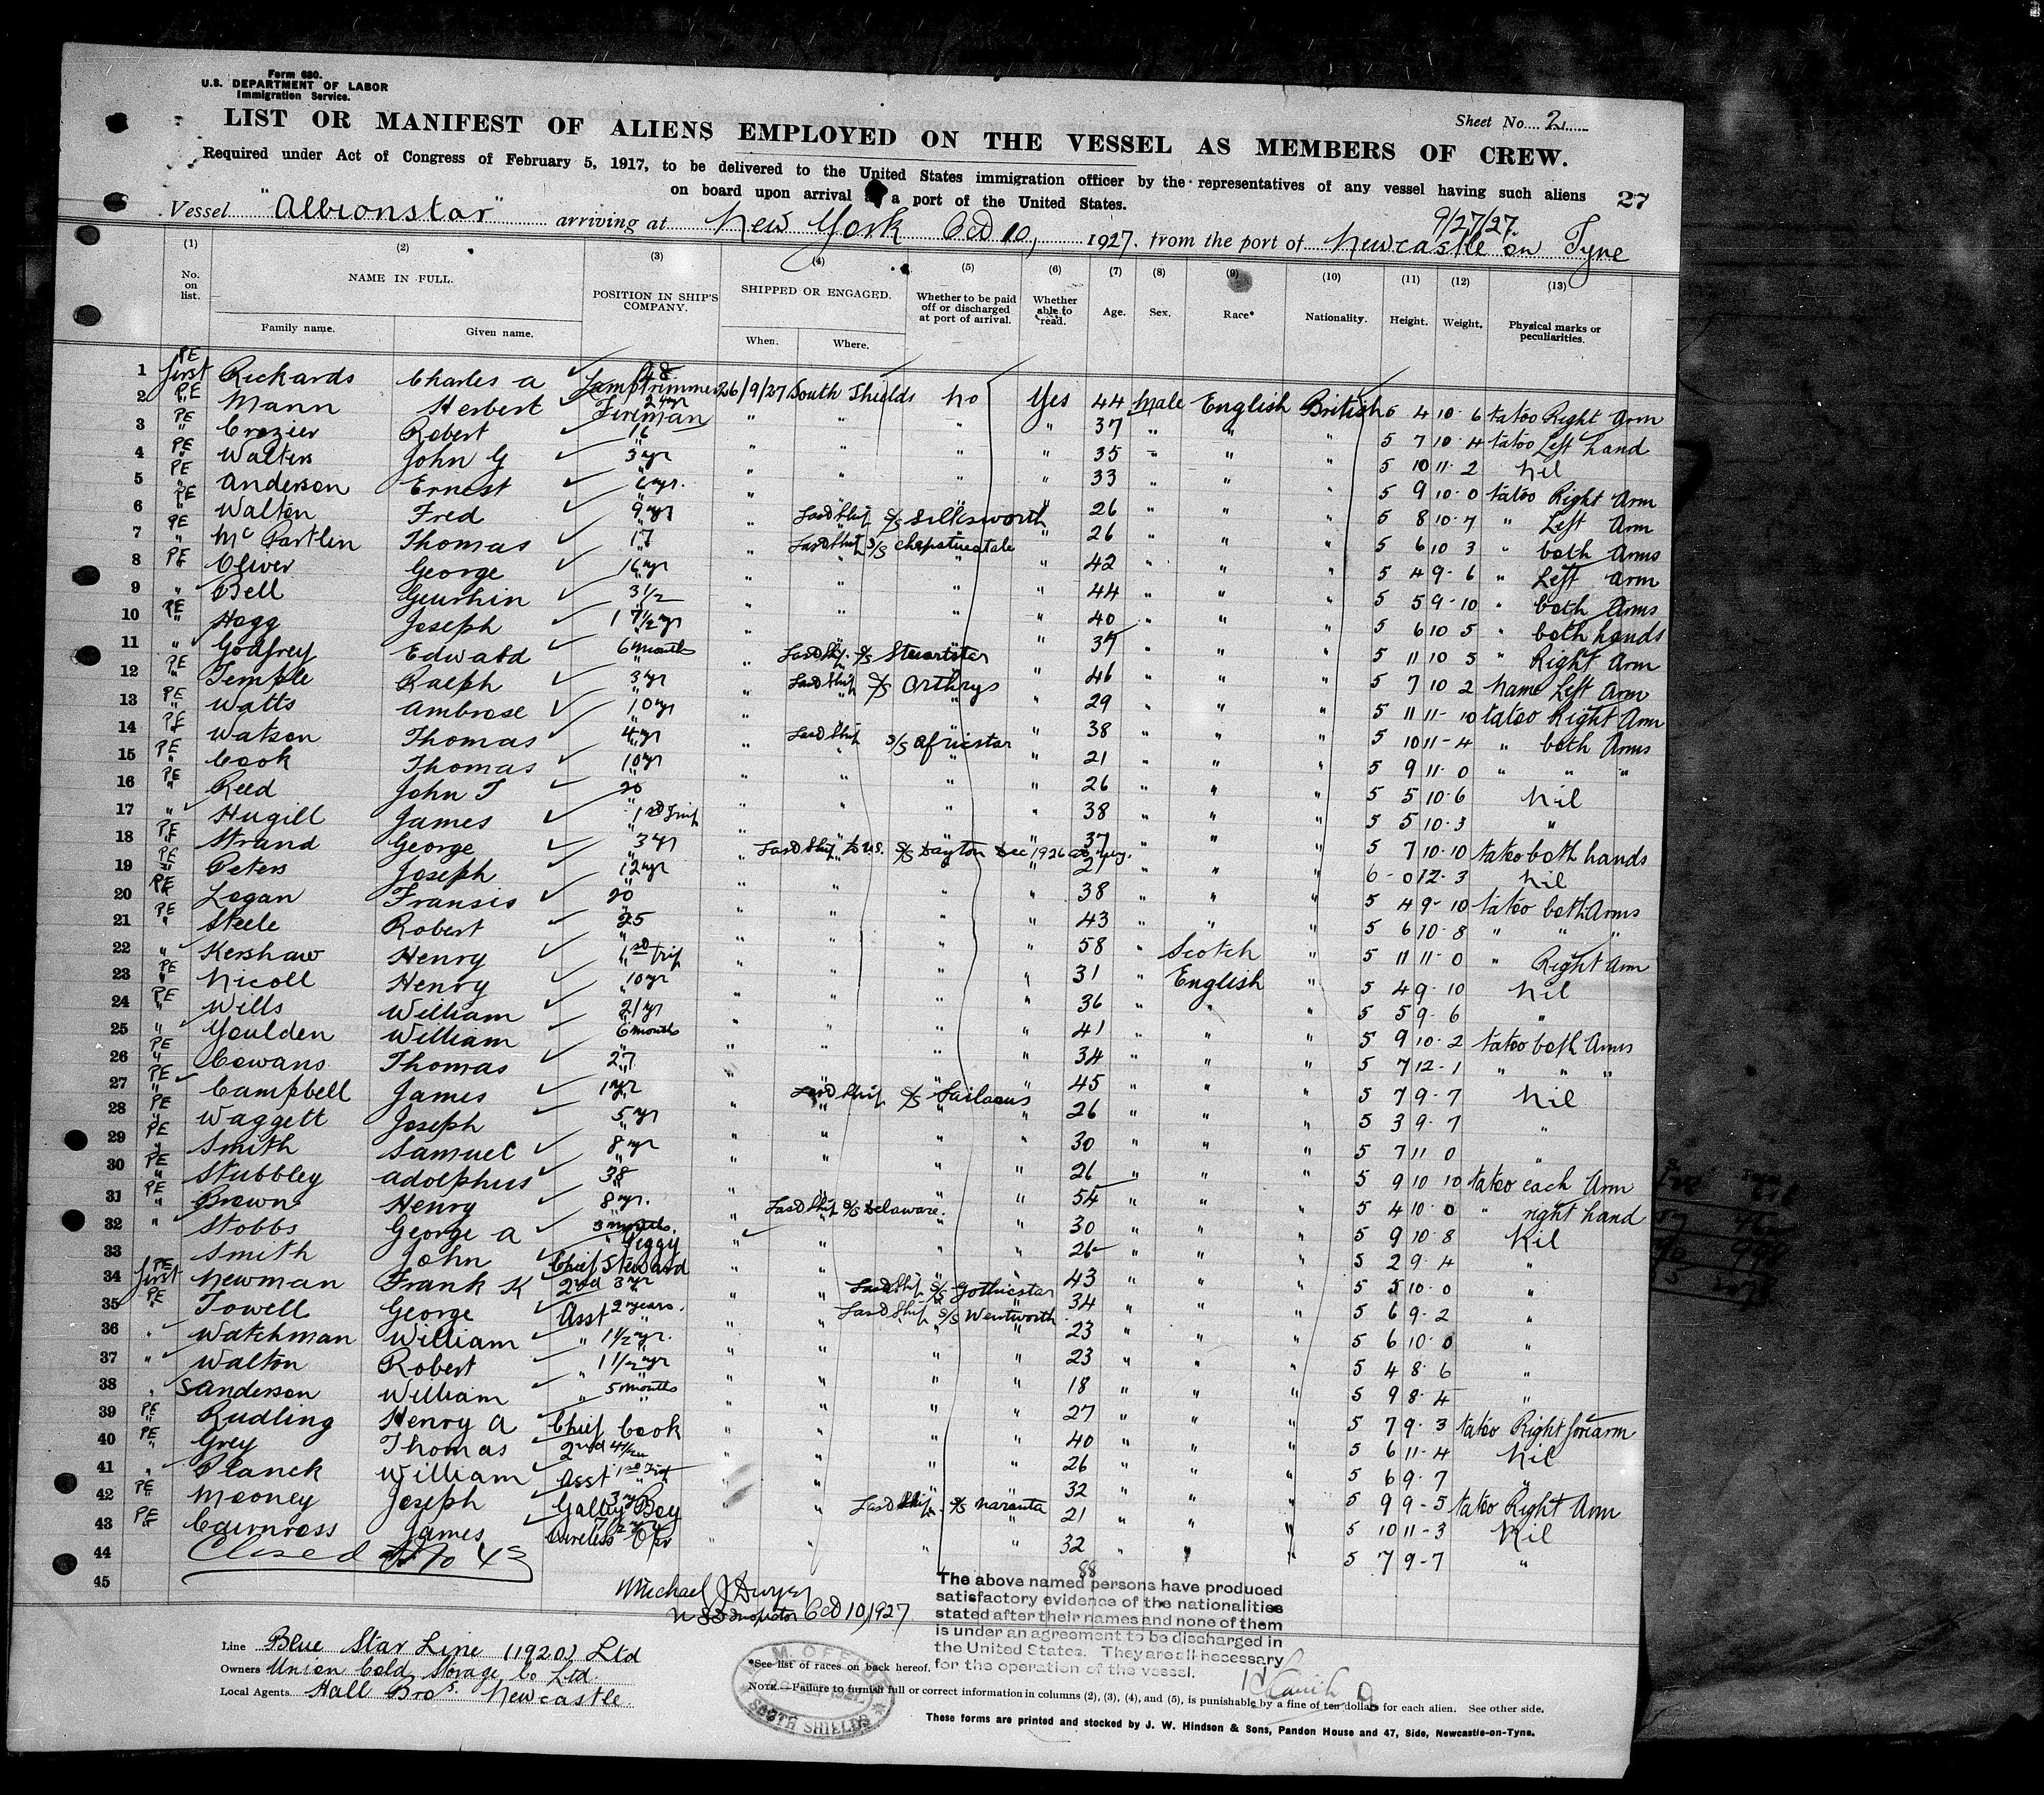 Form 680.
U.S. DEPARTMENT OF LABOR
Immigration Service.
Sheet No. 2
LIST OR MANIFEST OF ALIENS EMPLOYED ON THE VESSEL AS MEMBERS OF CREW.
Required under Act of Congress of February 5, 1917, to be delivered to the United States immigration officer by the representatives of any vessel having such aliens
on board upon arrival a a port of the United States.
27
9/27/27.
Vessel "Albionstar" arriving at New York Oct 10, 1927. from the port of Newcastle on Tyne
(1) (2) (3) (4) (5) (6) (7) (8) (9) (10) (11) (12) (13)
No. on list. NAME IN FULL. POSITION IN SHIP'S COMPANY. SHIPPED OR ENGAGED. Whether to be paid off or discharged at port of arrival. Whether able to read. Age. Sex. Race* Nationality. Height. Weight. Physical marks or peculiarities.
Family name. Given name. When. Where.
1 PE first Rickards Charles A 28 Lamptrimmer 26/9/27 South Shields No Yes 44 Male English British 5 4 10 · 6 tatoo Right Arm
2 PE " Mann Herbert 2 yr Fireman " " " 37 " " " 5 7 10 · 4 tatoo Left hand
3 PE " Crozier Robert 16 " " " 35 " " " 5 10 11 · 2 Nil
4 PE " Walters John G 3 yr " " " 33 " " " 5 9 10 · 0 tatoo Right Arm
5 PE " Anderson Ernest yr. " " 26 " " " 5 8 10 · 7 " Left Arm
6 PE " Walton Fred 9 yr " Last Ship S/S Silksworth " 26 " " " 5 6 10 3 " both Arms
7 PE " Mc Partlin Thomas 17 " Last Ship S/S " 42 " " " 5 4 9 · 6 " Left Arm
8 PE " Oliver George 16 yr " " " 44 " " " 5 5 9 · 10 " both Arms
9 " Bell 3 1/2 " " " 40 " " " 5 6 10 5 " both hands
10 PE " Hogg Joseph 17 1/2 yr " " " 37 " " " 5 11 10 5 " Right Arm
11 " Godfrey Edward 6 months " Last Ship S/S Stuartstar " 46 " " " 5 7 10 2 Name Left Arm
12 PE " Temple Ralph 3 yr " Last Ship S/S Orthrys " 29 " " " 5 11 11 · 10 tatoo Right Arm
13 PE " Watts Ambrose 10 yr " " 38 " " " 5 10 11 - 4 " both Arms
14 PE " Watson Thomas 4 yr " Last Ship S/S Africstar " 21 " " " 5 9 11 · 0 " " "
15 PE " Cook Thomas 10 yr " " " 26 " " " 5 5 10 · 6 Nil
16 PE " Reed John T 20 " " " 38 " " " 5 5 10 · 3 "
17 " Hugill James 1st Trip " " " 37 " " " 5 7 10 · 10 tatoo both hands
18 PE " Strand George 3 yr " Last Ship to U.S. S/S Dayton Dec 1926 " 27 " " " 6 - 0 12 · 3 Nil
19 PE " Peters Joseph 12 yr " " " 38 " " " 5 4 9 - 10 tatoo both Arms
20 PE Logan Fransis 20 " " " 43 " " " 5 6 10 · 8 " " "
21 PE " Steele Robert 25 " " " 58 " Scotch " 5 11 11 · 0 " Right Arm
22 " Kershaw Henry 1st Trip " " " 31 " English " 5 4 9 · 10 Nil
23 PE " Nicoll Henry 10 yr " " " 36 " " " 5 5 9 · 6 "
24 PE " Wills William 21 yr " " " 41 " " " 5 9 10 · 2 tatoo both Arms
25 " Youlden William 6 months " " " 34 " " " 5 7 12 · 1 " " "
26 PE " Cowans Thomas 27 " " " 45 " " " 5 7 9 · 7 Nil
27 PE " Campbell James 1 yr " Last Ship S/S " 26 " " " 5 3 9 · 7 "
28 PE " Waggett Joseph 5 yr " " " 30 " " " 5 7 11 0 "
29 PE " Smith Samuel 8 yr " " " 26 " " " 5 9 10 10 tatoo each Arm
30 PE " Stubbley Adolphus 38 " " " 54 " " " 5 4 10 · 0 " right hand
31 PE " Brown Henry 8 yr. " Last Ship S/S Delaware. " 30 " " " 5 9 10 · 8 Nil
32 " Stobbs George A 3 months. " " " 26 " " " 5 2 9 · 4 "
33 Smith John " Peggy " " " 43 " " " 5 5 10 · 0 "
34 PE first Newman Frank K Chief Steward 3 yr " Last Ship S/S Gothicstar " 34 " " " 5 6 9 · 2 "
35 PE " Towell George 2nd 2 years. " Last Ship S/S Wentworth 23 " " " 5 6 10 · 0 "
36 " Watchman William Asst 1 1/2 yr. " " " 23 " " " 5 4 8 · 6 "
37 " Walton Robert " 1 1/2 yr " " " 18 " " " 5 9 8 · 4 "
38 " Sanderson William " 5 months " " " 27 " " " 5 7 9 · 3 tatoo Right forearm
39 PE " Rudling Henry A Chief Cook " " " 40 " " " 5 6 11 - 4 Nil
40 PE " Grey Thomas 2nd " " " 26 " " " 5 6 9 · 7 "
41 " Planck William Asst 1st Trip " " " 32 " " " 5 9 9 - 5 tatoo Right Arm
42 PE " Mooney Joseph 3 yr Galley Boy " Last Ship. S/S Naranta " 21 " " " 5 10 11 - 3 Nil
43 PE " Cairncross James Wireless Opr " " " 32 " " " 5 7 9 - 7 "
44 Closed No 43
45
88
Michael J Dwyer
Inspector Oct 10, 1927
The above named persons have produced
satisfactory evidence of the nationalities
stated after their names and none of them
is under an agreement to be discharged in
the United States. They are all necessary
for the operation of the vessel.
Line Blue Star Line (1920) Ltd
Owners Union Cold Storage Co Ltd.
Local Agents. Hall Bros. Newcastle.
M. M. OFFICE
SOUTH SHIELDS
*See list of races on back hereof.
NOTE.—Failure to furnish full or correct information in columns (2), (3), (4), and (5), is punishable by a fine of ten dollars for each alien. See other side.
These forms are printed and stocked by J. W. Hindson & Sons, Pandon House and 47, Side, Newcastle-on-Tyne.